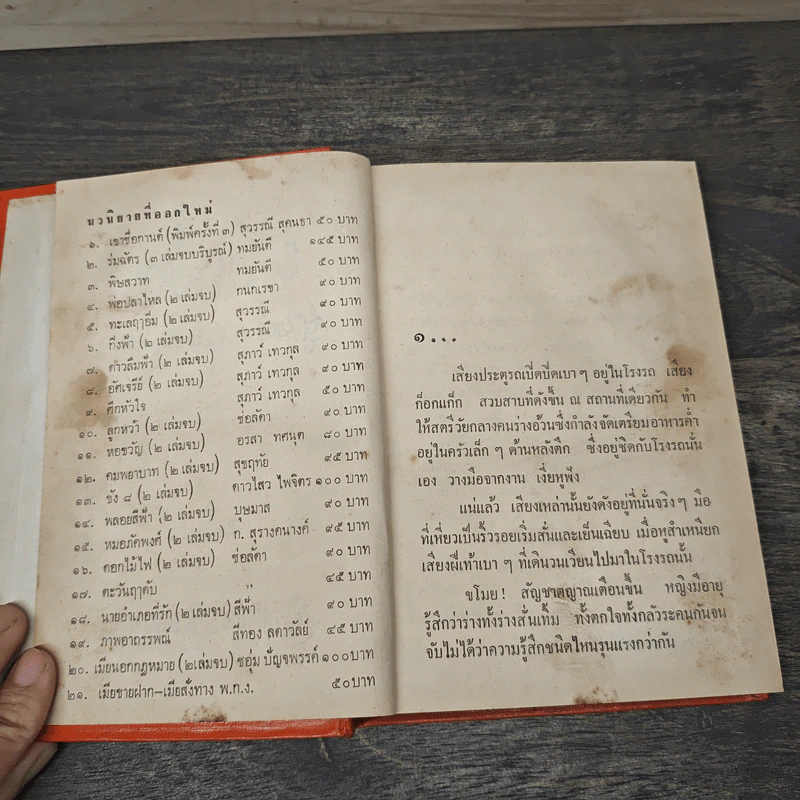 นวนิยายที่ออกใหม่
๑. เขาชื่อกานต์ (พิมพ์ครั้งที่ ๓) สุวรรณี สุคนธา ๕๐ บาท
๒. ร่มฉัตร (๓ เล่มจบบริบูรณ์) ทมยันตี ๑๔๕ บาท
๓. พิษสวาท ทมยันตี ๕๐ บาท
๔. พ่อปลาไหล (๒ เล่มจบ) กนกเรขา ๙๐ บาท
๕. ทะเลฤๅอิ่ม (๒ เล่มจบ) สุวรรณี ๙๐ บาท
๖. กึ่งฟ้า (๒ เล่มจบ) สุวรรณี ๙๐ บาท
๗. ดาวลืมฟ้า (๒ เล่มจบ) สุภาว์ เทวกุล ๙๐ บาท
๘. อัศเจรีย์ (๒ เล่มจบ) สุภาว์ เทวกุล ๙๐ บาท
๙. ตึกหัวใจ สุภาว์ เทวกุล ๕๐ บาท
๑๐. ลูกหว้า (๒ เล่มจบ) ช่อลัดา ๙๐ บาท
๑๑. หอขวัญ (๒ เล่มจบ) อรสา ทศนุต ๘๐ บาท
๑๒. คมพยาบาท (๒ เล่มจบ) สุขฤทัย ๙๕ บาท
๑๓. ขัง ๘ (๒ เล่มจบ) ดาวไสว ไพจิตร ๑๐๐ บาท
๑๔. พลอยสีฟ้า (๒ เล่มจบ) บุษมาส ๙๐ บาท
๑๕. หมอภัคพงศ์ (๒ เล่มจบ) ก. สุรางคนางค์ ๙๕ บาท
๑๖. ดอกไม้ไฟ (๒ เล่มจบ) ช่อลัดา ๙๐ บาท
๑๗. ตะวันฤๅดับ ,, ๔๕ บาท
๑๘. นายอำเภอที่รัก (๒ เล่มจบ) สีฟ้า ๙๐ บาท
๑๙. ภาพอาถรรพณ์ สีทอง ลดาวัลย์ ๔๕ บาท
๒๐. เมียนอกกฎหมาย (๒เล่มจบ) ชอุ่ม ปัญจพรรค์ ๑๐๐บาท
๒๑. เมียขายฝาก–เมียสั่งทาง พ.ก.ง. ๕๐บาท
๑...
เสียงประตูรถเปิดปิดเบา ๆ อยู่ในโรงรถ เสียง
ก็อกแก็ก สวบสาบที่ดังขึ้น ณ สถานที่เดียวกัน ทำ
ให้สตรีวัยกลางคนร่างอ้วนซึ่งกำลังจัดเตรียมอาหารค่ำ
อยู่ในครัวเล็ก ๆ ด้านหลังตึก ซึ่งอยู่ชิดกับโรงรถนั้น
เอง วางมือจากงาน เงี่ยหูฟัง
แน่แล้ว เสียงเหล่านั้นยังดังอยู่ที่นั่นจริง ๆ มือ
ที่เหี่ยวเป็นริ้วรอยเริ่มสั่นและเย็นเฉียบ เมื่อหูสำเหนียก
เสียงฝีเท้าเบา ๆ ที่เดินวนเวียนไปมาในโรงรถนั้น
ขโมย! สัญชาตญาณเตือนขึ้น หญิงมีอายุ
รู้สึกว่าร่างทั้งร่างสั่นเทิ้ม ทั้งตกใจทั้งกลัวระคนกันจน
จับไม่ได้ว่าความรู้สึกชนิดไหนรุนแรงกว่ากัน